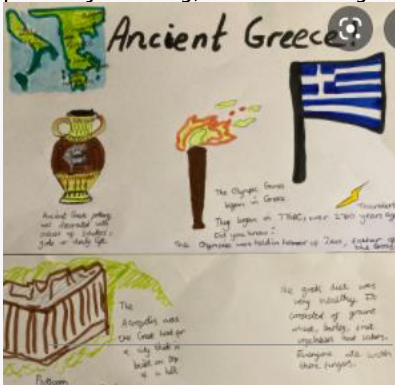 Ancient Greece!
Ancient Greek pottery
was decorated with
gods or daily life
The Olympic Games
began in Greece
They began in 776BC, over 2760 years ago
Did you know?
The Olympics were held in honour of Zeus, father of
the Gods
Thunderbolt
The
Acropolis was
the Greek word for
a city that is
built on top
of a hill
The greek diet was
very healthy. It
consisted of ground
wheat, barley, fruit
vegetables and
Everyone ate with
there fingers.